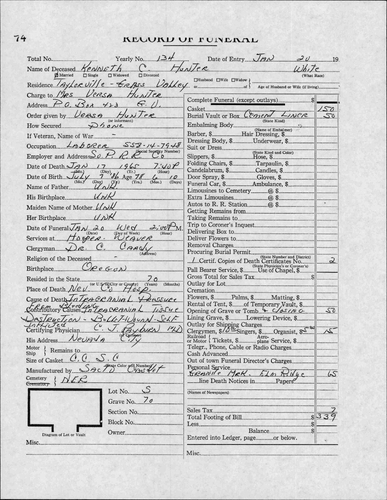 74
RECORD OF FUNERAL
Total No. Yearly No. 134 Date of Entry JAN 20 19
Name of Deceased KENNETH C. HUNTER White
Married Single Widowed Divorced (What Race)
Residence TAYLORVILLE - GRASS VALLEY Husband Wife Widow Age of Husband or Wife (if living)
Charge to MRS VERSA HUNTER
Address P.O. BOX 422 G.V.
Order given by VERSA HUNTER
How Secured PHONE
If Veteran, Name of War
Occupation LABORER
Employer and Address S.P.R.R. Co
Date of Death JAN 17 1965 7:40P
Date of Birth JULY 7 86 78 6 10
Name of Father UNK
His Birthplace UNK
Maiden Name of Mother UNK
Her Birthplace UNK
Date of Funeral JAN 20 WED 2:00PM
Services at HOOPER - WEAVER
Clergyman DR. C. CANDY
Religion of the Deceased
Birthplace OREGON
Resided in the State 70
Place of Death NEV. CO. HOSP.
Cause of Death INTRACRANIAL PRESSURE
FROM BLEEDING
Contributory Causes INTRACRANIAL TISSUE
DESTRUCTION - GUNSHOT SELF
INFLICTED
Certifying Physician C. J. MD
His Address NEVADA CITY
Motor
Ship Remains to
Size of Casket
Manufactured by
Cemetery
Crematory N.E.R.
Lot No. S
Grave No. 70
Section No.
Block No.
Owner
Diagram of Lot or Vault
Misc.
Complete Funeral (except outlays) $
Casket 150
Burial Vault or Box CEMENT LINER 50
Embalming Body
Barber, $ Hair Dressing, $
Dressing Body, $ Underwear, $
Suit or Dress
Slippers, $ Hose, $
Folding Chairs, $ Tarpaulin, $
Candelabrum, $ Candles, $
Door Spray, $ Gloves, $
Funeral Car, $ Ambulance, $
Limousines to Cemetery @ $
Extra Limousines @ $
Autos to R. R. Station @ $
Getting Remains from
Taking Remains to
Trip to Coroner's Inquest
Delivering Box to
Deliver Flowers to
Removal Charges
Procuring Burial Permit
1 Certif. Copies of Death Certificates No. 2
Pall Bearer Service, $ Use of Chapel, $
Gross Sale
Outlay for Lot
Cremation
Flowers, $ Palms, $ Matting, $
Rental of Tent, $ of Temporary Vault, $
Opening of Grave or Tomb & CLOSING 50
Lining Grave, $ Lowering Device, $
Outlay for Shipping Charges
Clergyman, $ Singers, $ Organist, $ 15
Tickets, $ Service, $
Telegr., Phone, Cable or Radio Charges
Cash Advanced
Out of town Funeral Director's Charges
Personal Service
GRANITE MKR. ELM RIDGE 65
line Death Notices in Papers
(Names of Newspapers)
Sales Tax
Total Footing of Bill $ 339
Less
Balance $
Entered into Ledger, page or below.
Misc.